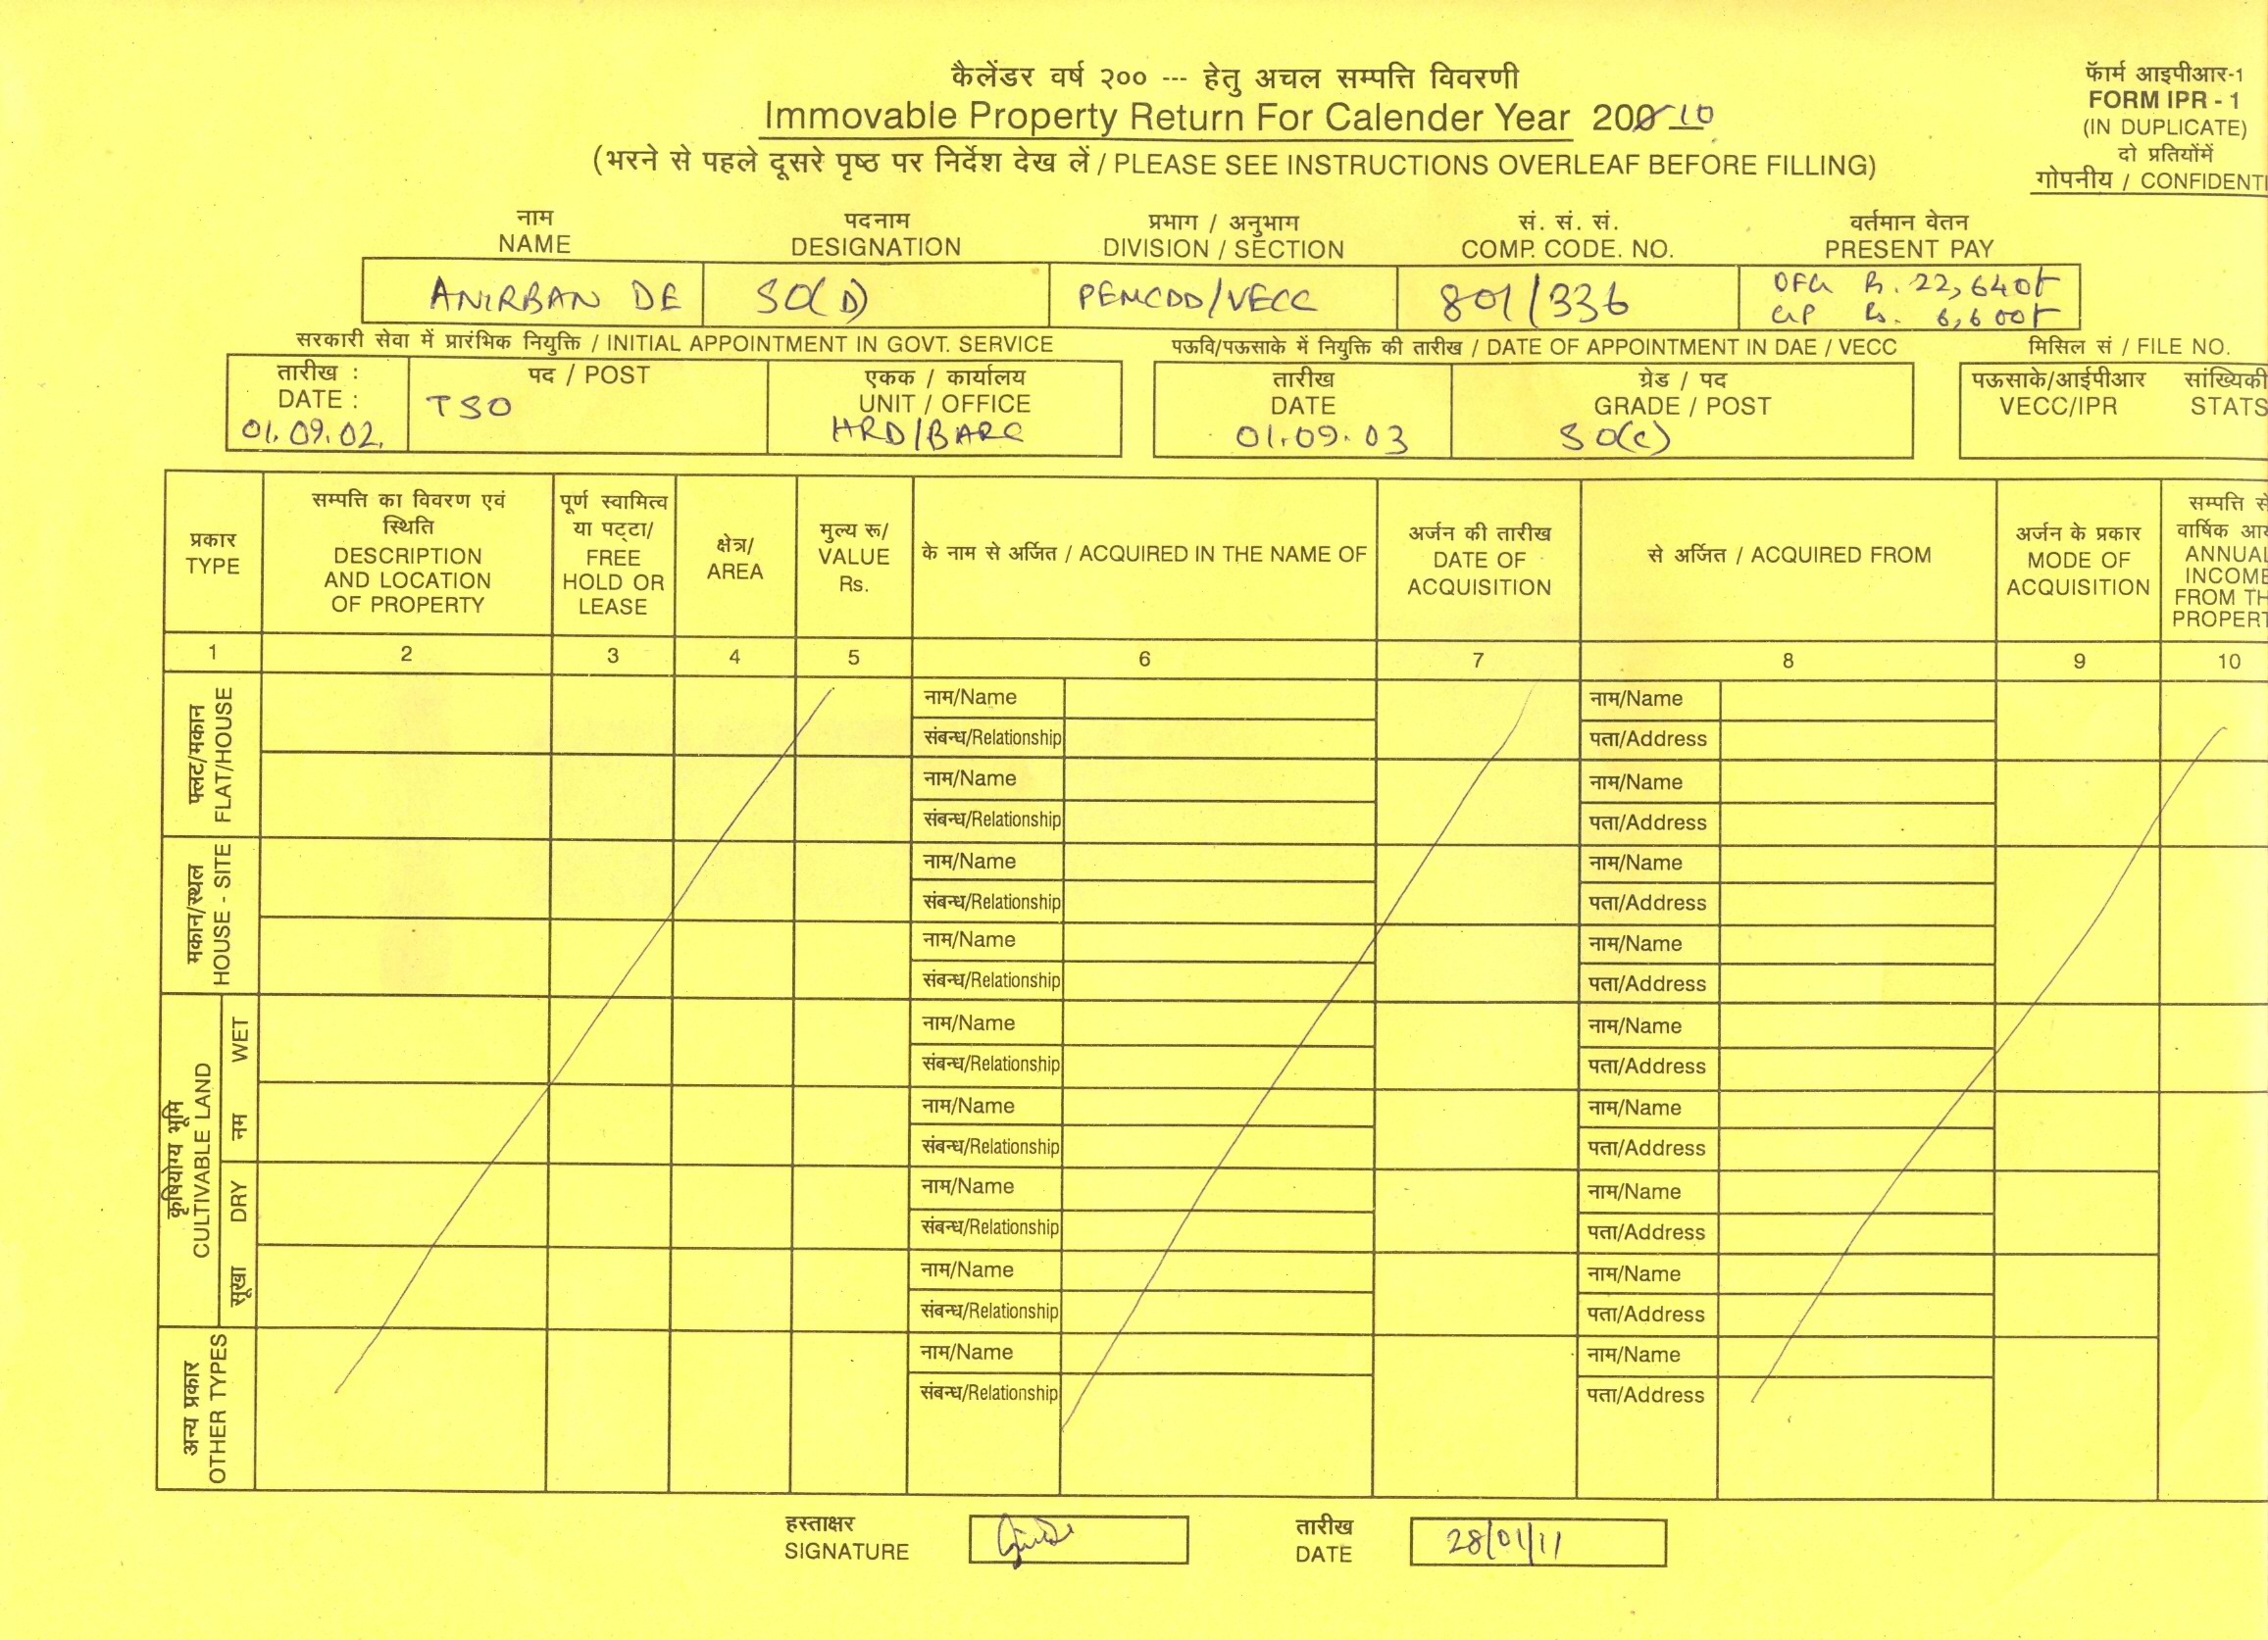 कैलेंडर वर्ष २०० --- हेतु अचल सम्पत्ति विवरणी
Immovable Property Return For Calender Year 200 10
(भरने से पहले दूसरे पृष्ठ पर निर्देश देख लें / PLEASE SEE INSTRUCTIONS OVERLEAF BEFORE FILLING)
फॅार्म आइपीआर-1
FORM IPR - 1
(IN DUPLICATE)
दो प्रतियोंमें
गोपनीय / CONFIDENTI
नाम पदनाम प्रभाग / अनुभाग सं. सं. सं. वर्तमान वेतन
NAME DESIGNATION DIVISION / SECTION COMP. CODE. NO. PRESENT PAY
ANIRBAN DE SO(D) PEMCDD/VECC 801/336 Rs. 22,640/-
GP Rs. 6,600/-
सरकारी सेवा में प्रारंभिक नियुक्ति / INITIAL APPOINTMENT IN GOVT. SERVICE
पऊवि/पऊसाके में नियुक्ति की तारीख / DATE OF APPOINTMENT IN DAE / VECC
मिसिल सं / FILE NO.
तारीख : पद / POST एकक / कार्यालय तारीख ग्रेड / पद पऊसाके/आईपीआर सांख्यिकी
DATE : TSO UNIT / OFFICE DATE GRADE / POST VECC/IPR STATS
01.09.02. HRD/BARC 01.09.03 SO(C)
प्रकार
TYPE
सम्पत्ति का विवरण एवं
स्थिति
DESCRIPTION
AND LOCATION
OF PROPERTY
पूर्ण स्वामित्व
या पट्टा/
FREE
HOLD OR
LEASE
क्षेत्र/
AREA
मुल्य रू/
VALUE
Rs.
के नाम से अर्जित / ACQUIRED IN THE NAME OF
अर्जन की तारीख
DATE OF
ACQUISITION
से अर्जित / ACQUIRED FROM
अर्जन के प्रकार
MODE OF
ACQUISITION
सम्पत्ति से
वार्षिक आय
ANNUAL
INCOME
FROM TH
PROPERT
1 2 3 4 5 6 7 8 9 10
फ्लट/मकान
FLAT/HOUSE
नाम/Name नाम/Name
संबन्ध/Relationship पता/Address
नाम/Name नाम/Name
संबन्ध/Relationship पता/Address
मकान/स्थल
HOUSE - SITE
नाम/Name नाम/Name
संबन्ध/Relationship पता/Address
नाम/Name नाम/Name
संबन्ध/Relationship पता/Address
कृषियोग्य भूमि
CULTIVABLE LAND
नम WET
नाम/Name नाम/Name
संबन्ध/Relationship पता/Address
नाम/Name नाम/Name
संबन्ध/Relationship पता/Address
सूखा DRY
नाम/Name नाम/Name
संबन्ध/Relationship पता/Address
नाम/Name नाम/Name
संबन्ध/Relationship पता/Address
अन्य प्रकार
OTHER TYPES
नाम/Name नाम/Name
संबन्ध/Relationship पता/Address
हस्ताक्षर तारीख
SIGNATURE DATE 28/01/11